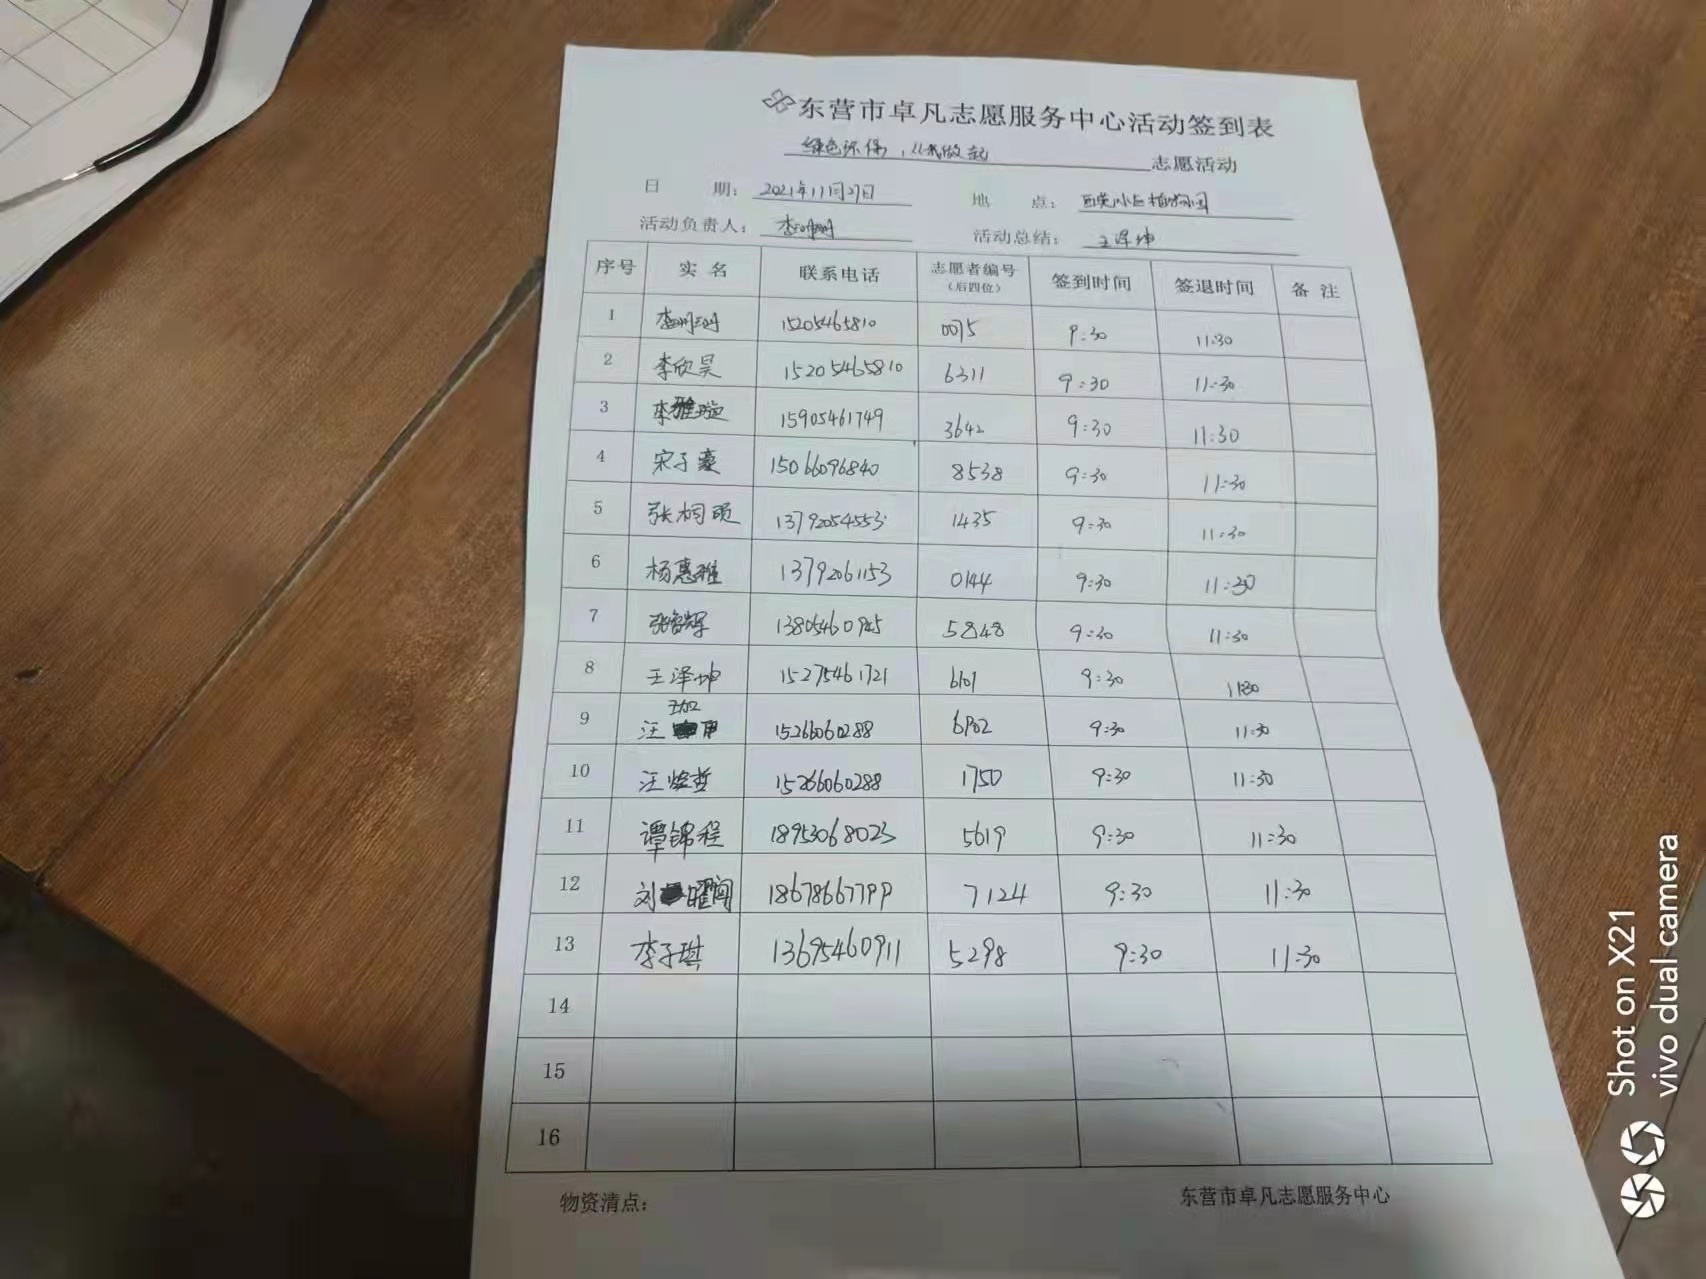 东营市卓凡志愿服务中心活动签到表
绿色环保，从我做起 志愿活动
日 期： 2021年11月27日 地 点： 植物园
活动负责人： 李珊珊 活动总结： 王泽坤
序号 实名 联系电话 志愿者编号（后四位） 签到时间 签退时间 备注
1 李珊珊 15205465810 0075 9:30 11:30
2 李欣昊 15205465810 6311 9:30 11:30
3 李雅璇 15905461749 3642 9:30 11:30
4 宋子豪 15066096840 8538 9:30 11:30
5 张桐硕 13792054553 1435 9:30 11:30
6 杨惠雅 13792061153 0144 9:30 11:30
7 张 辉 13805460945 5848 9:30 11:30
8 王泽坤 15275461721 6101 9:30 11:30
9 汪珈 15266060288 6902 9:30 11:30
10 汪 哲 15266060288 1750 9:30 11:30
11 谭锦程 18953068023 5619 9:30 11:30
12 刘曜 18678667799 7124 9:30 11:30
13 李子琪 13695460911 5298 9:30 11:30
14
15
16
物资清点： 东营市卓凡志愿服务中心
Shot on X21
vivo dual camera